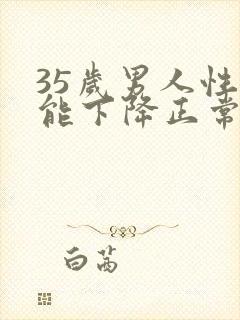 35岁男人性
能下降正常
白茜